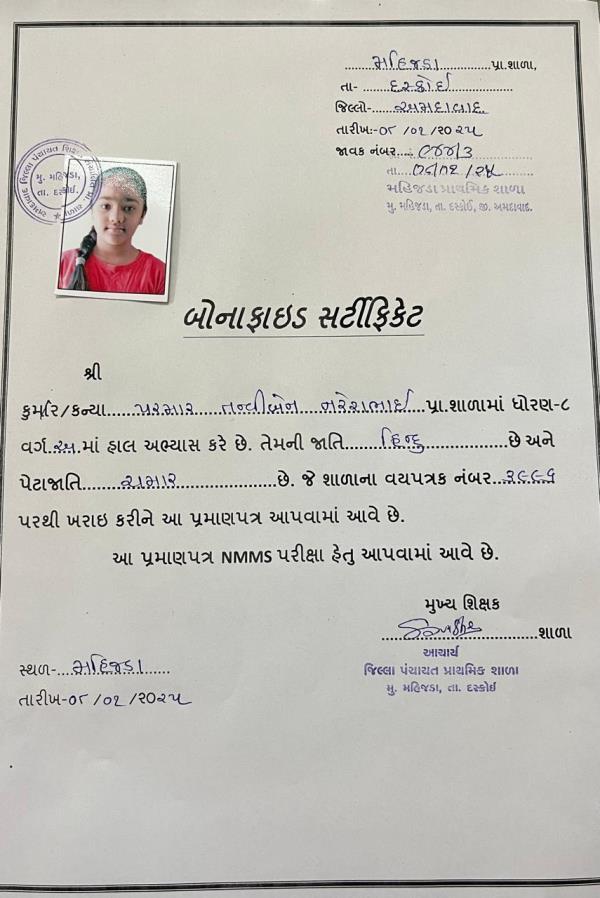 મહિજડા પ્રા.શાળા,
તા- દસ્ક્રોઈ
જિલ્લો- અમદાવાદ
તારીખ:-૦૮/૦૧/૨૦૨૫
જાવક નંબર
મહિજડા પ્રાથમિક શાળા
મુ. મહિજડા, તા. દસ્ક્રોઈ, જી. અમદાવાદ.
મુ. મહિજડા,
તા. દસ્ક્રોઈ.
બોનાફાઇડ સર્ટીફિકેટ
શ્રી
કુમાર/કન્યા પરમાર તન્વીબેન નરેશભાઈ પ્રા.શાળામાં ધોરણ-૮
વર્ગ.અ.માં હાલ અભ્યાસ કરે છે. તેમની જાતિ હિન્દુ છે અને
પેટાજાતિ ચમાર છે. જે શાળાના વયપત્રક નંબર ૩૯૯૬
પરથી ખરાઇ કરીને આ પ્રમાણપત્ર આપવામાં આવે છે.
આ પ્રમાણપત્ર NMMS પરીક્ષા હેતુ આપવામાં આવે છે.
મુખ્ય શિક્ષક
શાળા
આચાર્ય
જિલ્લા પંચાયત પ્રાથમિક શાળા
મુ. મહિજડા, તા. દસ્ક્રોઈ
સ્થળ- મહિજડા
તારીખ-૦૮/૦૧/૨૦૨૫